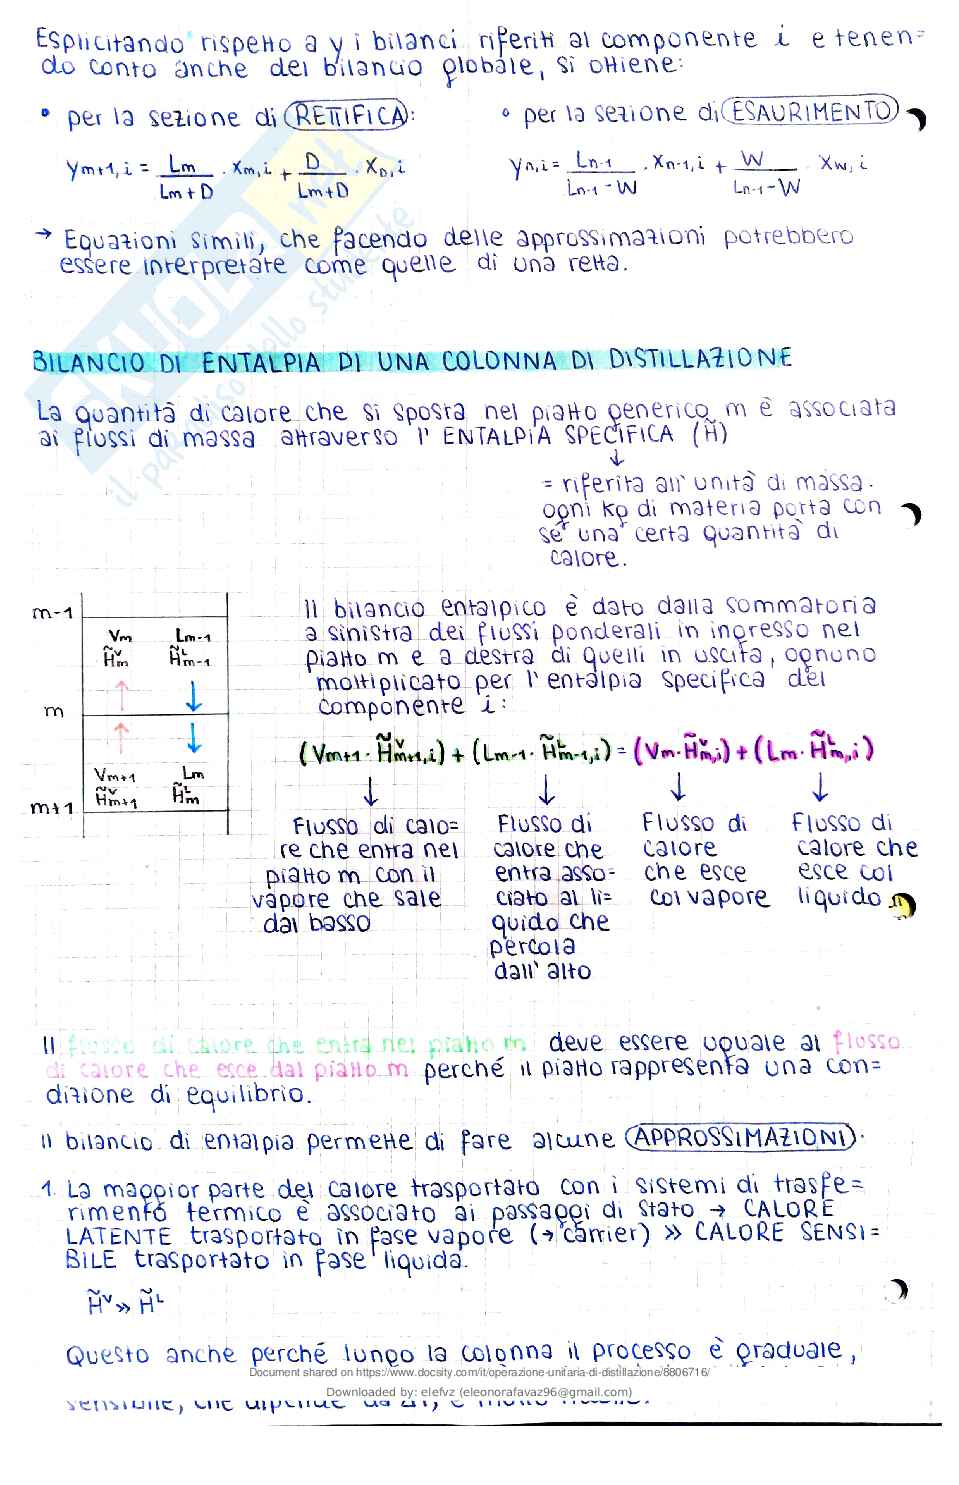 Esplicitando rispetto a y i bilanci riferiti al componente i e tenen=
do conto anche del bilancio globale, si ottiene:
• per la sezione di RETTIFICA:
ym+1,i = Lm / Lm+D · xm,i + D / Lm+D · xD,i
• per la sezione di ESAURIMENTO
yn,i = Ln-1 / Ln-1-W · xn-1,i + W / Ln-1-W · xw,i
→ Equazioni simili, che facendo delle approssimazioni potrebbero
essere interpretate come quelle di una retta.
BILANCIO DI ENTALPIA DI UNA COLONNA DI DISTILLAZIONE
La quantità di calore che si sposta nel piatto generico m è associata
ai flussi di massa attraverso l'ENTALPIA SPECIFICA (H̃)
↓
= riferita all'unità di massa.
ogni kg di materia porta con
se' una certa quantità di
calore.
m-1
Vm Lm-1
H̃ᵛm H̃ᴸm-1
m
Vm+1 Lm
H̃ᵛm+1 H̃ᴸm
m+1
Il bilancio entalpico è dato dalla sommatoria
a sinistra dei flussi ponderali in ingresso nel
piatto m e a destra di quelli in uscita, ognuno
moltiplicato per l'entalpia specifica del
componente i:
(Vm+1 · H̃ᵛm+1,i) + (Lm-1 · H̃ᴸm-1,i) = (Vm · H̃ᵛm,i) + (Lm · H̃ᴸm,i)
↓ ↓ ↓ ↓
Flusso di calo=
re che entra nel
piatto m con il
vapore che sale
dal basso
Flusso di
calore che
entra asso=
ciato al li=
quido che
percola
dall'alto
Flusso di
calore
che esce
col vapore
Flusso di
calore che
esce col
liquido
Il flusso di calore che entra nel piatto m deve essere uguale al flusso
di calore che esce dal piatto m perché il piatto rappresenta una con=
dizione di equilibrio.
Il bilancio di entalpia permette di fare alcune APPROSSIMAZIONI.
1. La maggior parte del calore trasportato con i sistemi di trasfe=
rimento termico è associato ai passaggi di stato → CALORE
LATENTE trasportato in fase vapore (→ carrier) » CALORE SENSI=
BILE trasportato in fase liquida.
H̃ᵛ » H̃ᴸ
Questo anche perché lungo la colonna il processo è graduale,
Document shared on https://www.docsity.com/it/operazione-unitaria-di-distillazione/8806716/
Downloaded by: elefvz (eleonorafavaz96@gmail.com)
SKUOLA.net
il paradiso dello studente